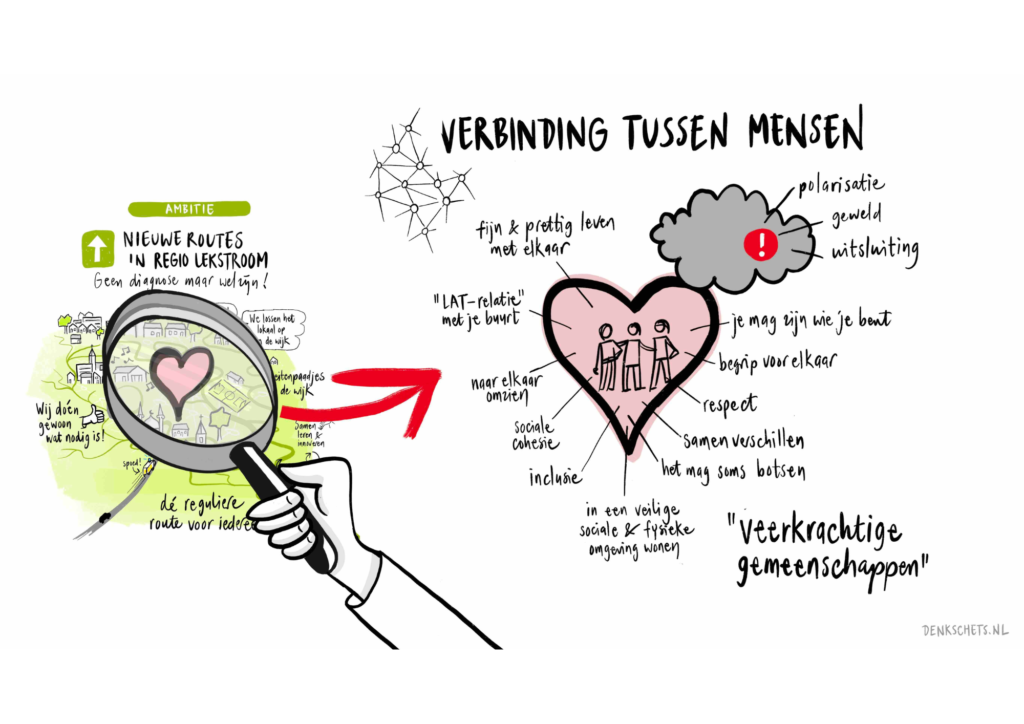 VERBINDING TUSSEN MENSEN
AMBITIE
NIEUWE ROUTES
IN REGIO LEKSTROOM
Geen diagnose maar welzijn!
We lossen het
lokaal op
de wijk
de wijk
Wij dóen
gewoon
wat nodig is!
Domen
leren &
innoveren
spoed!
dé reguliere
route voor
polarisatie
geweld
uitsluiting
!
fijn & prettig leven
met elkaar
"LAT-relatie"
met je buurt
naar elkaar
omzien
sociale
cohesie
inclusie
in een veilige
sociale & fysieke
omgeving wonen
je mag zijn wie je bent
begrip voor elkaar
respect
samen verschillen
het mag soms botsen
"veerkrachtige
gemeenschappen"
DENKSCHETS.NL